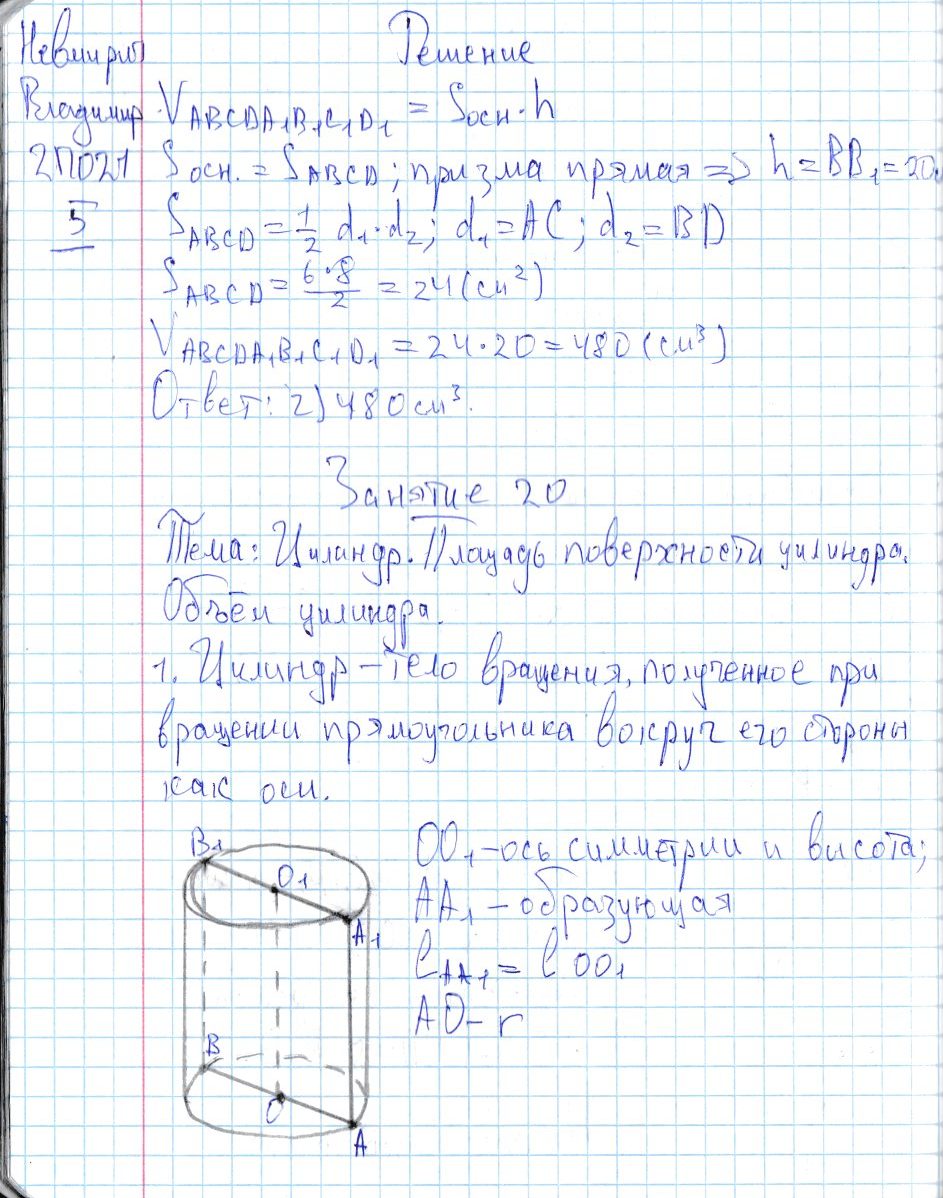 Решение
Владимир
2П021
5
V ABCDA₁B₁C₁D₁ = Sосн · h
Sосн. = SABCD; призма прямая => h = BB₁ = 20
SABCD = 1/2 d₁·d₂; d₁ = AC; d₂ = BD
SABCD = 6·8/2 = 24 (см²)
V ABCDA₁B₁C₁D₁ = 24·20 = 480 (см³)
Ответ: 2) 480 см³.
Занятие 20
Тема: Цилиндр. Площадь поверхности цилиндра.
Объём цилиндра.
1. Цилиндр – тело вращения, полученное при
вращении прямоугольника вокруг его стороны
как оси.
OO₁ – ось симметрии и высота;
AA₁ – образующая
l AA₁ = l OO₁
AO – r
B₁
O₁
A₁
B
O
A